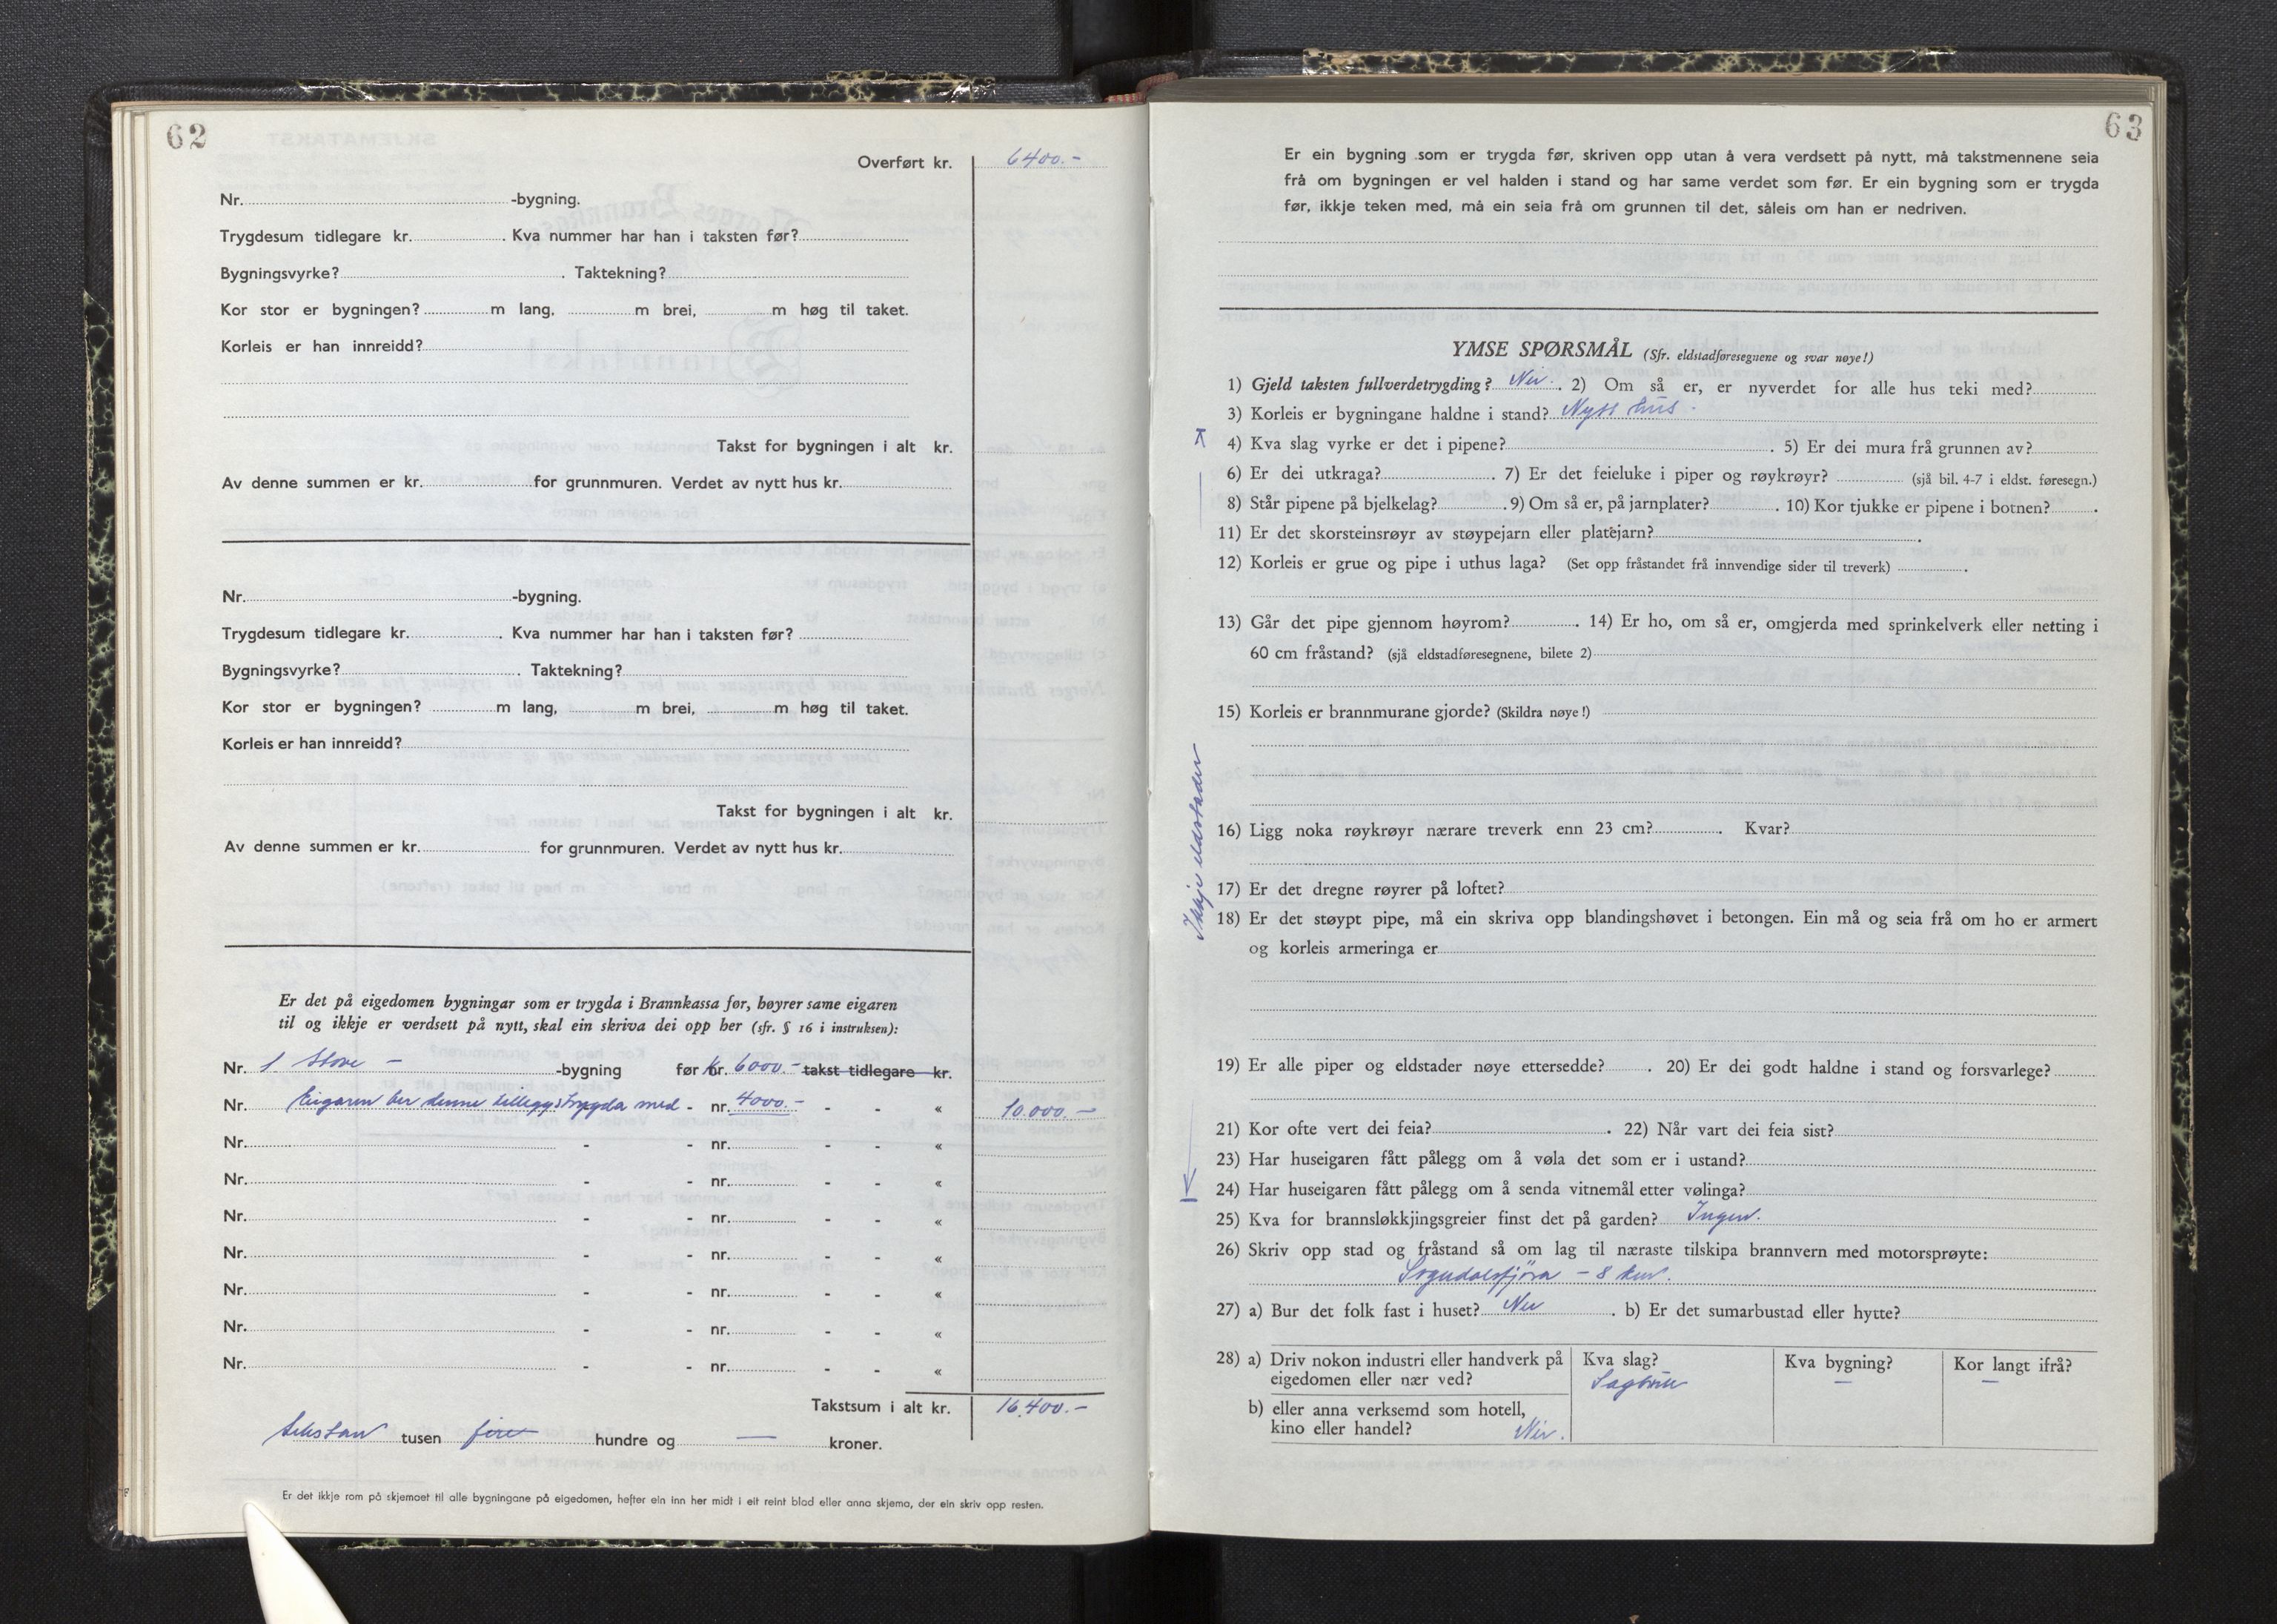 62
Overført kr. 6400.-
Nr. -bygning.
Trygdesum tidlegare kr. . Kva nummer har han i taksten før?
Bygningsvyrke? . Taktekning?
Kor stor er bygningen? m lang, m brei, m høg til taket.
Korleis er han innreidd?
Takst for bygningen i alt kr.
Av denne summen er kr. for grunnmuren. Verdet av nytt hus kr.
Nr. -bygning.
Trygdesum tidlegare kr. . Kva nummer har han i taksten før?
Bygningsvyrke? . Taktekning?
Kor stor er bygningen? m lang, m brei, m høg til taket.
Korleis er han innreidd?
Takst for bygningen i alt kr.
Av denne summen er kr. for grunnmuren. Verdet av nytt hus kr.
Er det på eigedomen bygningar som er trygda i Brannkassa før, høyrer same eigaren
til og ikkje er verdsett på nytt, skal ein skriva dei opp her (sfr. § 16 i instruksen):
Nr. 1 Stove - -bygning før kr. 6000.- takst tidlegare kr.
Nr. Eigaren ber denne tilleggstrygda med - nr. 4000.- - - « 10.000.-
Nr. - - nr. - - «
Nr. - - nr. - - «
Nr. - - nr. - - «
Nr. - - nr. - - «
Nr. - - nr. - - «
Nr. - - nr. - - «
Nr. - - nr. - - «
Takstsum i alt kr. 16.400.-
Seksten tusen fire hundre og — kroner.
Er det ikkje rom på skjemaet til alle bygningane på eigedomen, hefter ein inn her midt i eit reint blad eller anna skjema, der ein skriv opp resten.
63
Er ein bygning som er trygda før, skriven opp utan å vera verdsett på nytt, må takstmennene seia
frå om bygningen er vel halden i stand og har same verdet som før. Er ein bygning som er trygda
før, ikkje teken med, må ein seia frå om grunnen til det, såleis om han er nedriven.
YMSE SPØRSMÅL (Sfr. eldstadføresegnene og svar nøye!)
1) Gjeld taksten fullverdetrygding? Nei. . 2) Om så er, er nyverdet for alle hus teki med?
3) Korleis er bygningane haldne i stand? Nytt hus.
4) Kva slag vyrke er det i pipene? . 5) Er dei mura frå grunnen av?
6) Er dei utkraga? . 7) Er det feieluke i piper og røykrøyr? (sjå bil. 4-7 i eldst. føresegn.)
8) Står pipene på bjelkelag? . 9) Om så er, på jarnplater? . 10) Kor tjukke er pipene i botnen? .
11) Er det skorsteinsrøyr av støypejarn eller platejarn? .
12) Korleis er grue og pipe i uthus laga? (Set opp fråstandet frå innvendige sider til treverk) .
13) Går det pipe gjennom høyrom? . 14) Er ho, om så er, omgjerda med sprinkelverk eller netting i
60 cm fråstand? (sjå eldstadføresegnene, bilete 2)
15) Korleis er brannmurane gjorde? (Skildra nøye!)
Ikkje eldstader
16) Ligg noka røykrøyr nærare treverk enn 23 cm? . Kvar?
17) Er det dregne røyrer på loftet?
18) Er det støypt pipe, må ein skriva opp blandingshøvet i betongen. Ein må og seia frå om ho er armert
og korleis armeringa er
19) Er alle piper og eldstader nøye ettersedde? . 20) Er dei godt haldne i stand og forsvarlege?
21) Kor ofte vert dei feia? . 22) Når vart dei feia sist?
23) Har huseigaren fått pålegg om å vøla det som er i ustand?
24) Har huseigaren fått pålegg om å senda vitnemål etter vølinga?
25) Kva for brannsløkkjingsgreier finst det på garden? Ingen.
26) Skriv opp stad og fråstand så om lag til næraste tilskipa brannvern med motorsprøyte:
Sogndalsfjøra - 8 km.
27) a) Bur det folk fast i huset? Nei . b) Er det sumarbustad eller hytte?
28) a) Driv nokon industri eller handverk på eigedomen eller nær ved? Kva slag? Kva bygning? Kor langt ifrå?
Sagbruk — —
b) eller anna verksemd som hotell,
kino eller handel? Nei.